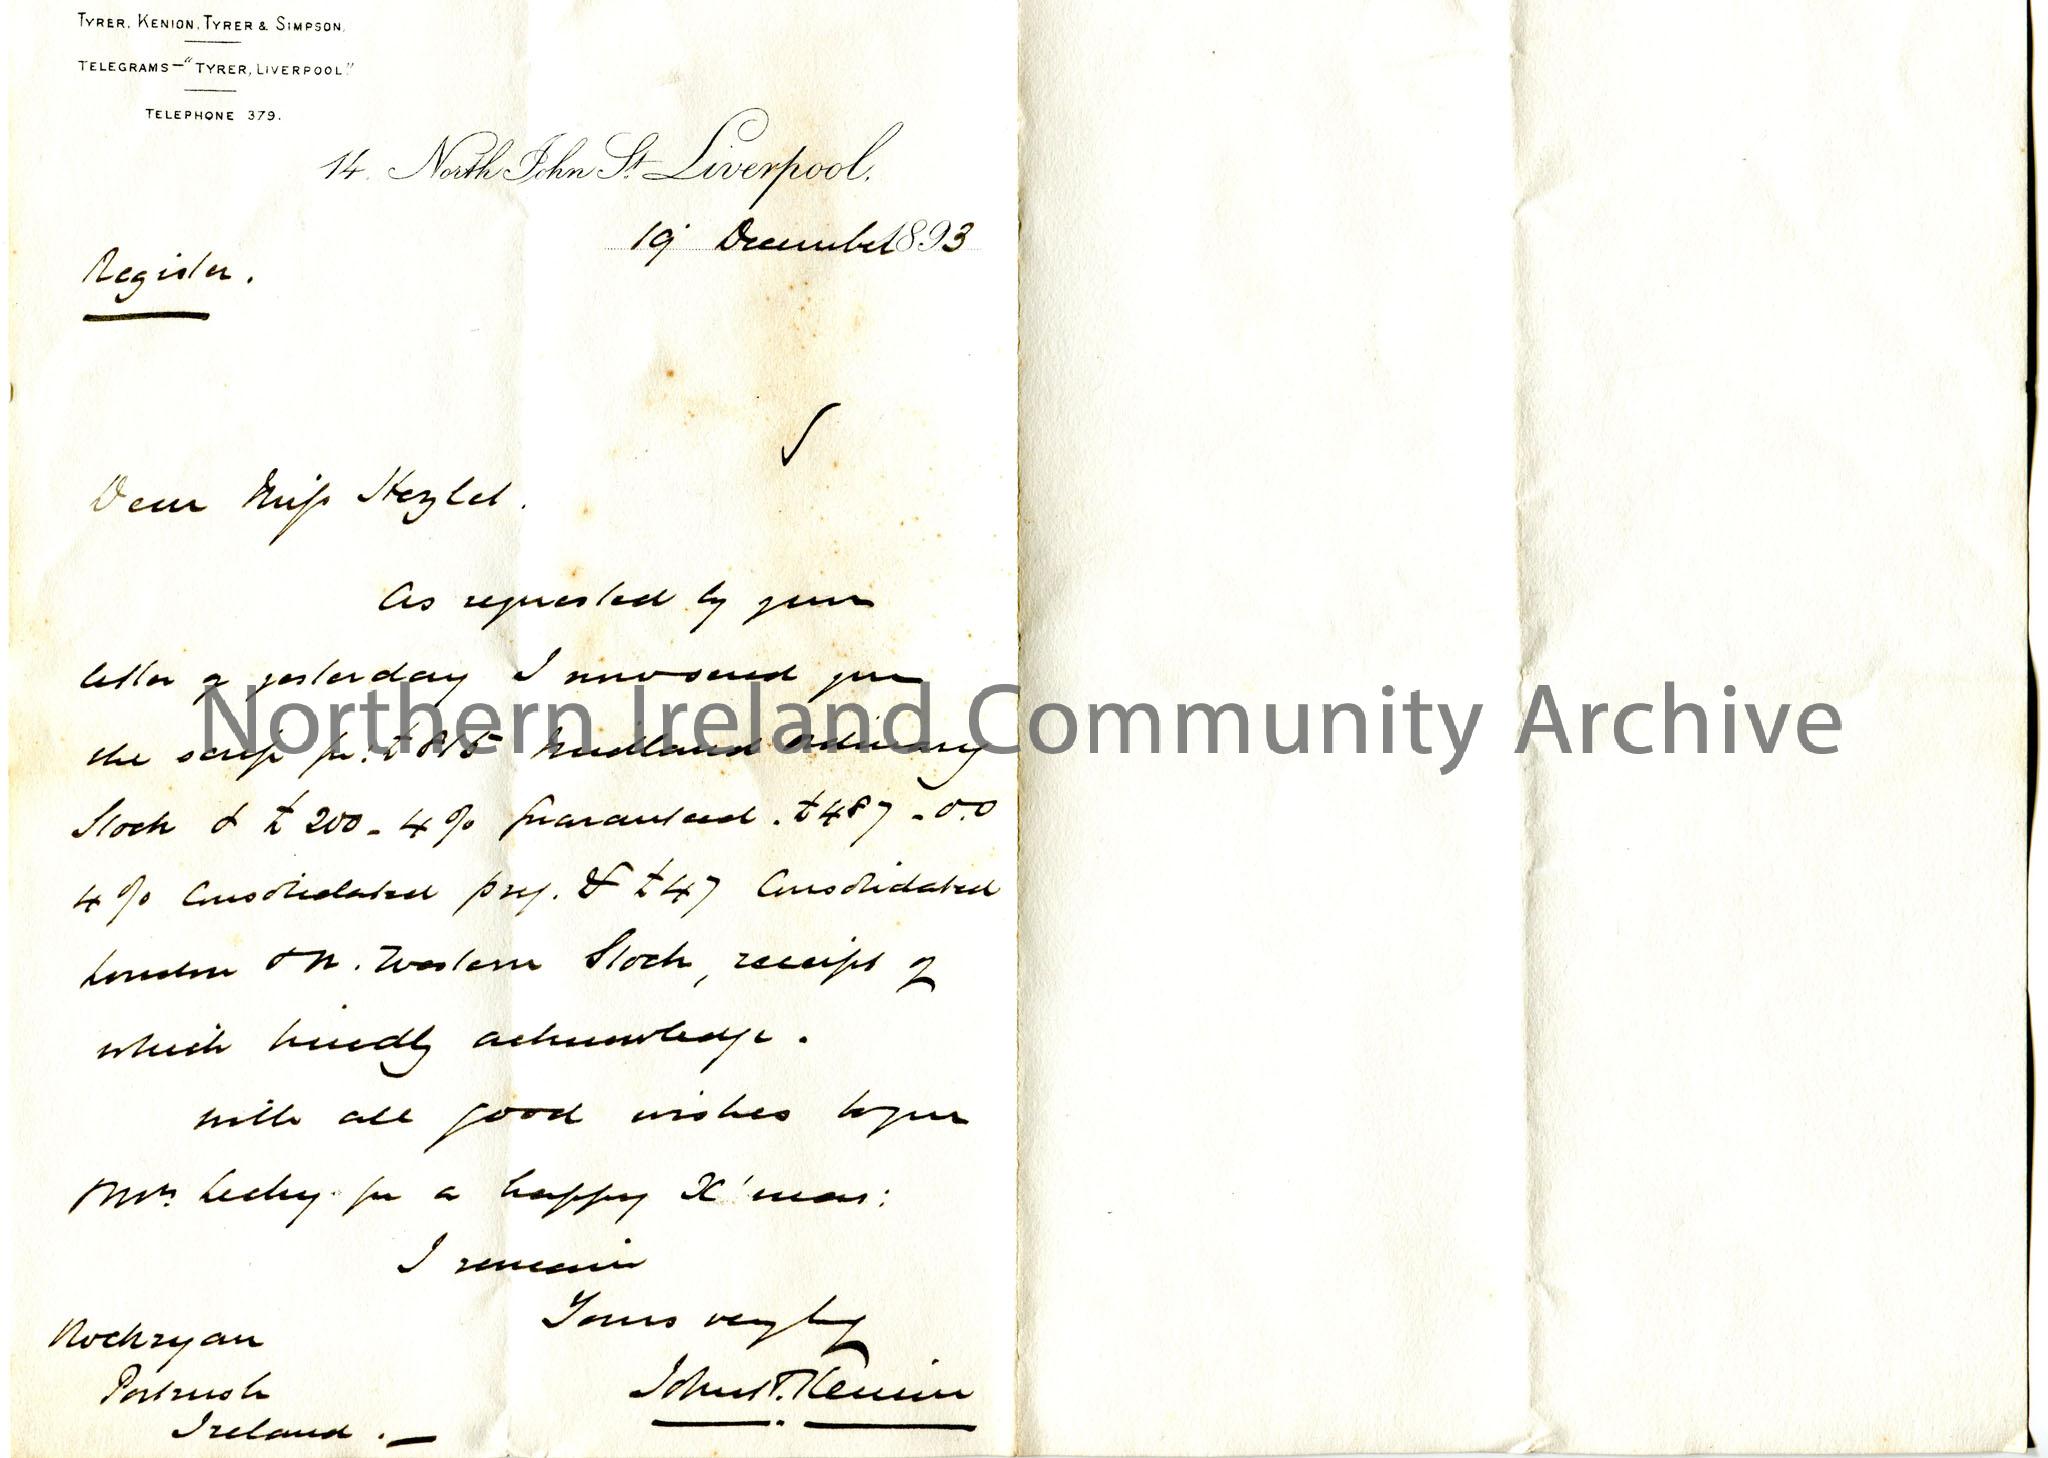 TYRER, KENION, TYRER & SIMPSON.
TELEGRAMS—"TYRER, LIVERPOOL"
TELEPHONE 379.
14. North John St. Liverpool.
19 December 1893
Register.
Dear Miss Hezlet.
As requested by your
letter of yesterday I now send you
the scrip for £815 Midland Ordinary
Stock & £200 - 4% Guaranteed. £487-0.0
4% Consolidated pref. & £47 Consolidated
London & N. Western Stock, receipt of
which kindly acknowledge.
With all good wishes to you
& Mrs Lecky for a happy X'mas:
I remain
Yours very truly
John T. Kenion
Rockryan
Portrush
Ireland.
Northern Ireland Community Archive